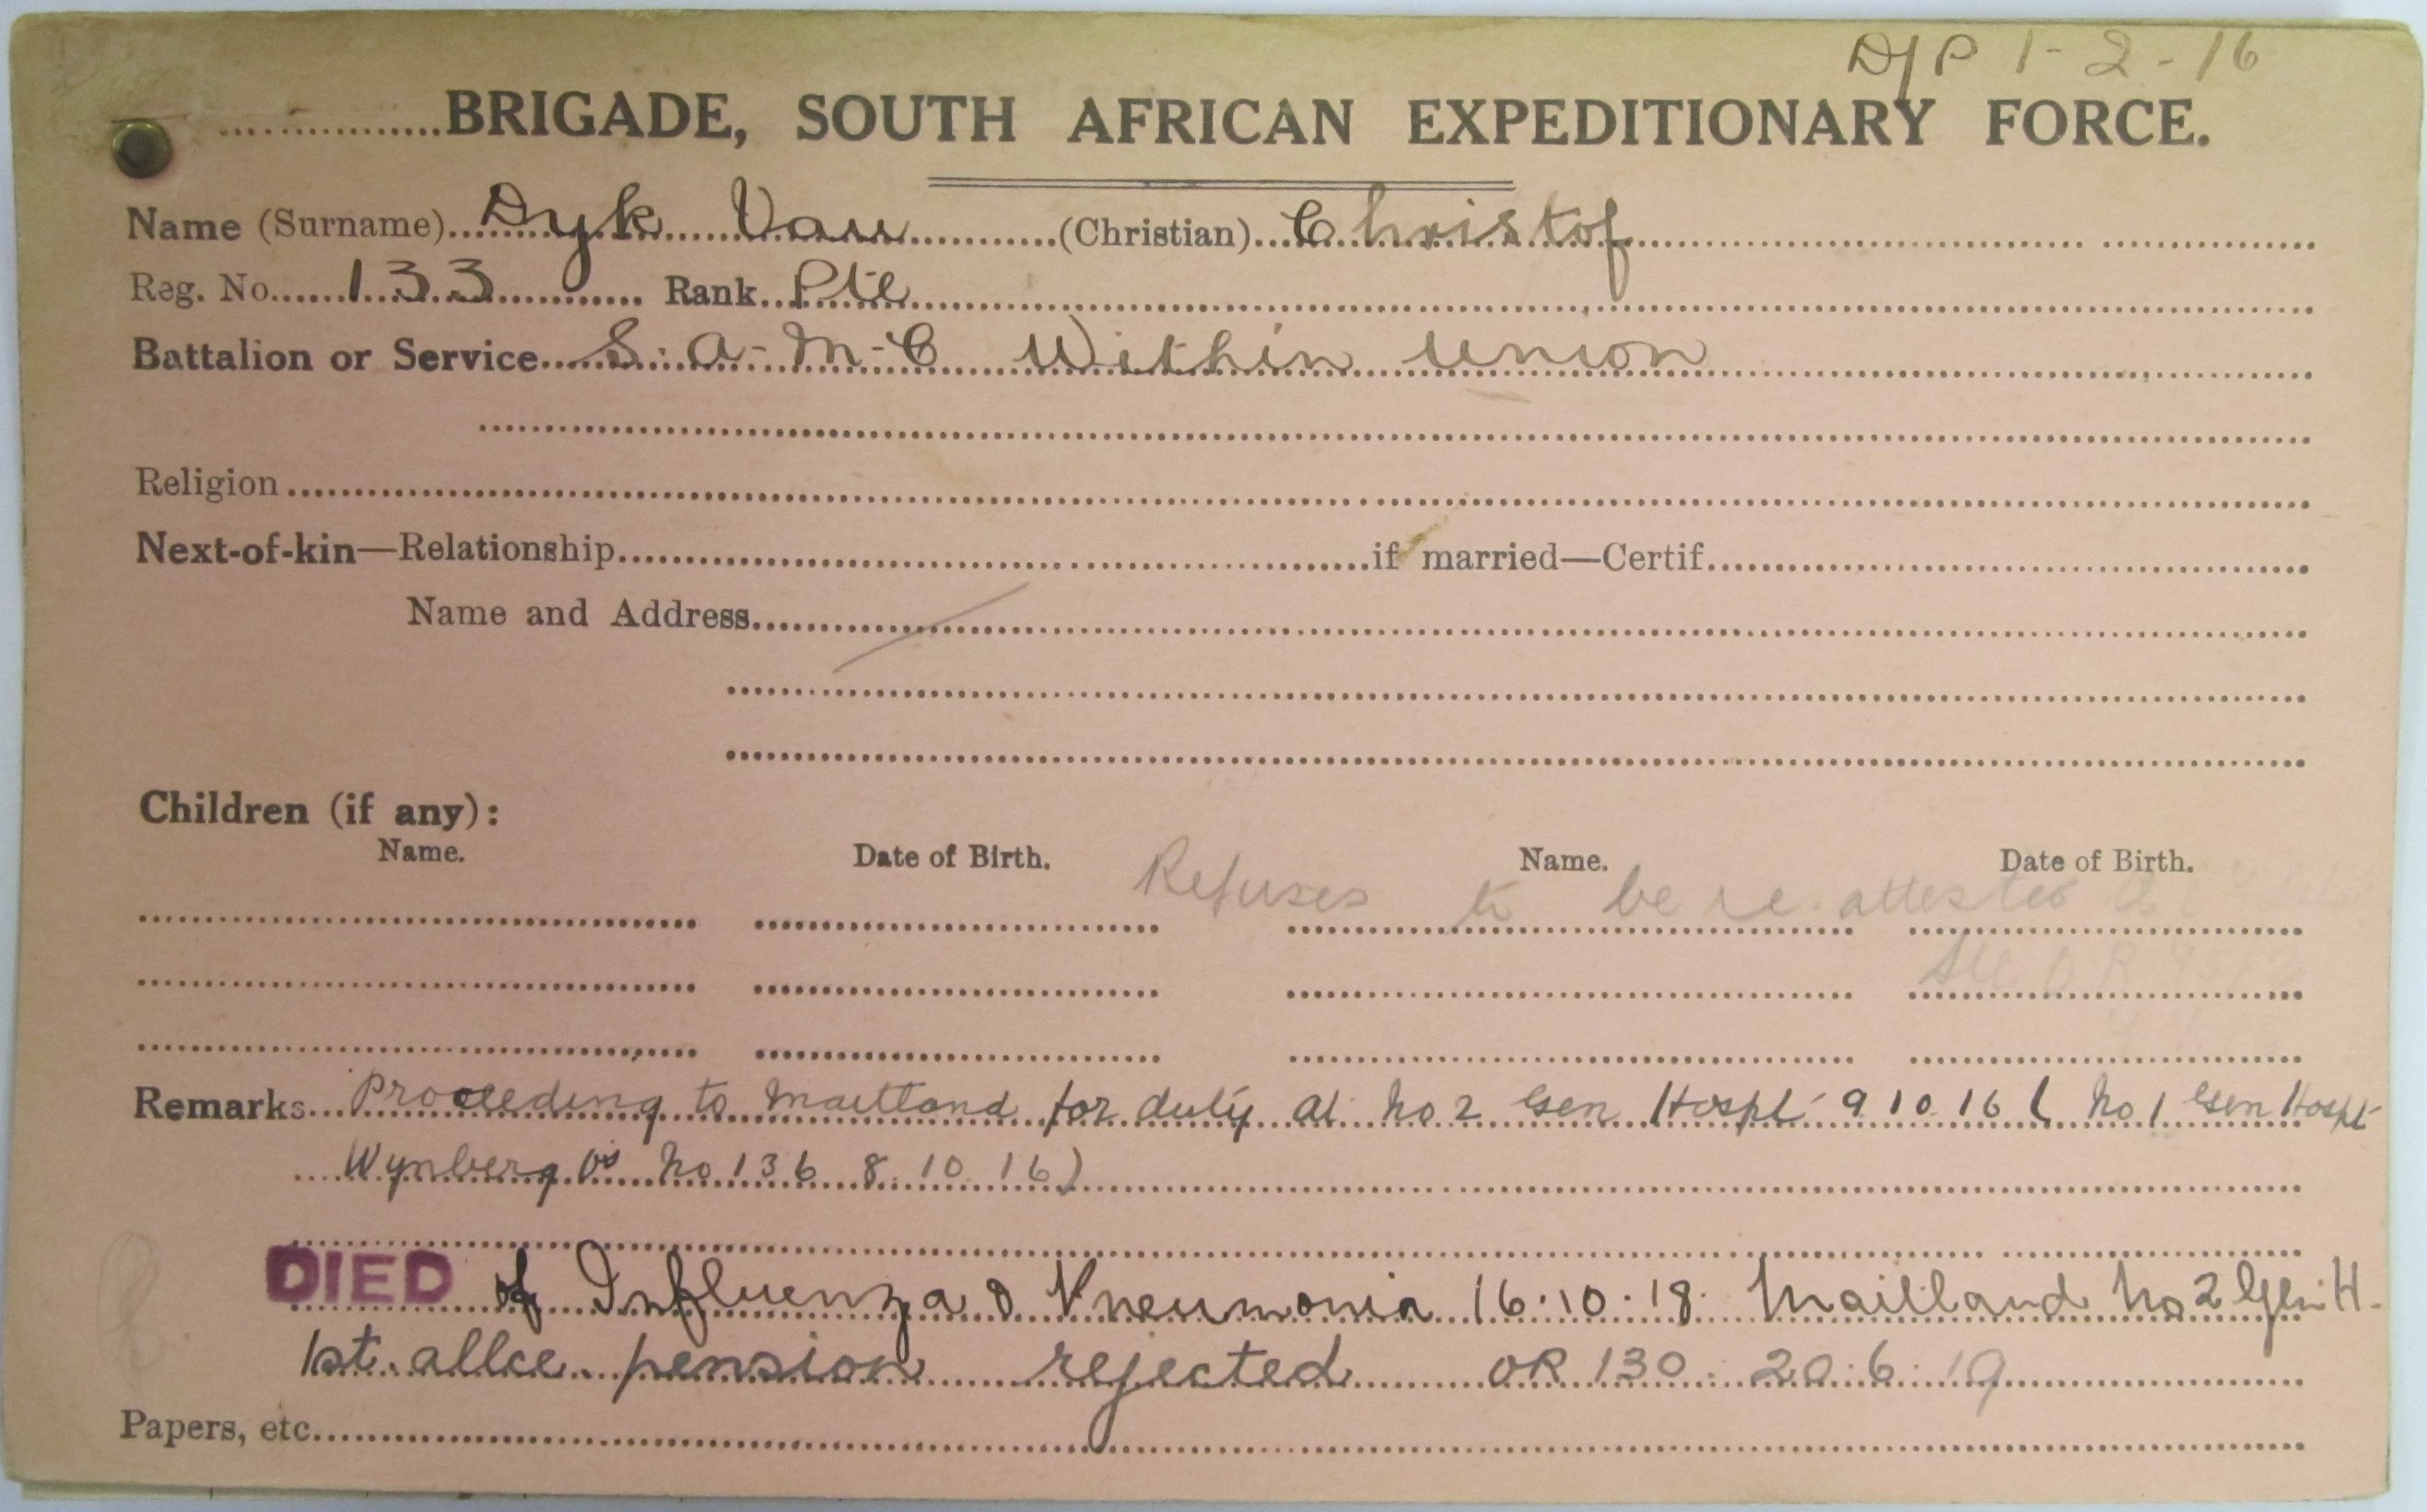 D/P 1-2-16
BRIGADE, SOUTH AFRICAN EXPEDITIONARY FORCE.
Name (Surname) Dyk Van (Christian) Christof
Reg. No. 133 Rank Pte
Battalion or Service S.A.M.C Within Union
Religion
Next-of-kin—Relationship if married—Certif.
Name and Address
Children (if any):
Name. Date of Birth. Name. Date of Birth.
Refuses to be re.attested
Remarks Proceeding to Maitland for duty at No 2 Gen Hospl 9 10 16 ( No 1 Gen Hospl
Wynberg No 136 8 10 16)
DIED of Influenza & Pneumonia 16.10.18. Maitland No 2 Gen H.
1st allce pension rejected OR 130 20.6.19
Papers, etc.